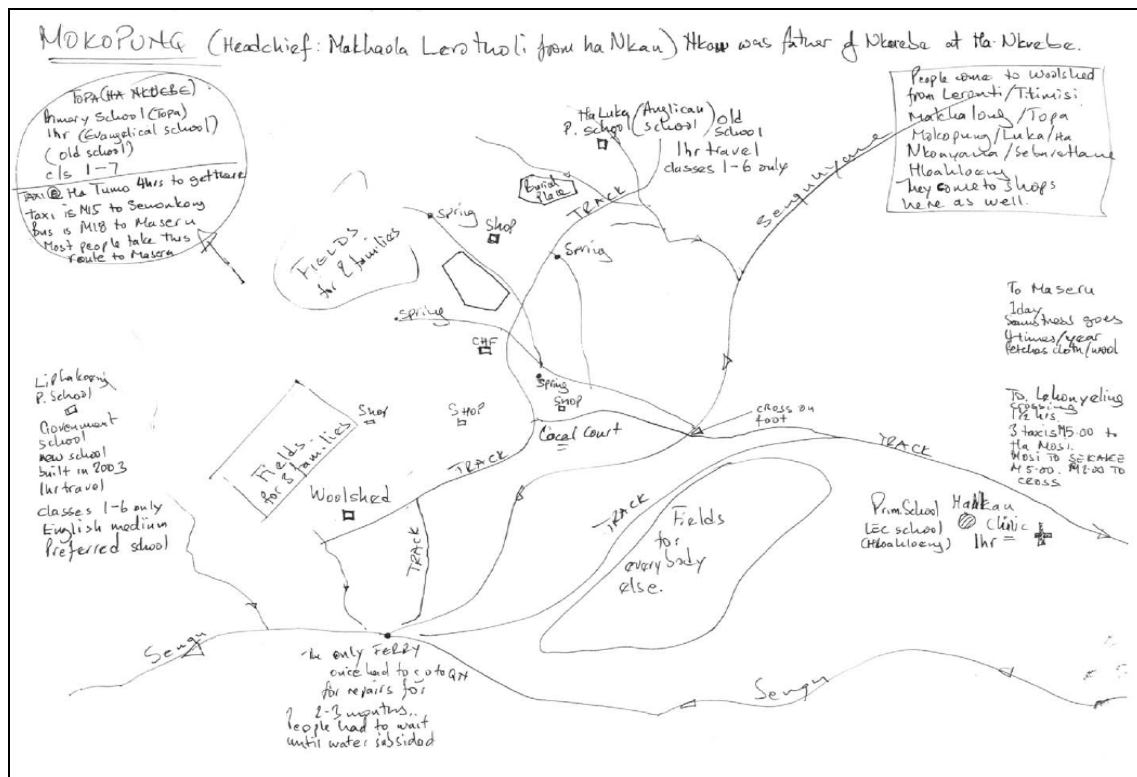 MOKOPUNG (Headchief: Makhaola Lerotholi from ha Nkau) Nkau was father of Nkuebe at Ha-Nkuebe.
TOPA (HA NKUEBE)
Primary School (Topa)
1hr (Evangelical school)
(old school)
cls 1-7
TAXI @ Ha Tumo 4hrs to get there
taxi is M15 to Semonkong
bus is M18 to Maseru
Most people take this
route to Maseru
Ha Luka
P. school
(Anglican
school)
old
school
1hr travel
classes 1-6 only
People come to woolshed
from Leronti/Titimisi
Makhalong/Topa
Mokopung/Luka/Ha
Nkonyana/Seburetlane
Hloahloeng
They come to shops
here as well.
Burial
Place
TRACK
Senqunyane
spring
Shop
FIELDS
for 2 families
spring
spring
CHF
spring
SHOP
To Maseru
1day
Seamstress goes
4times/year
fetches cloth/wool
Liphakoeng
P. School
Government
school
new school
built in 2003
1hr travel
classes 1-6 only
English medium
Preferred school
Fields
for 3 families
Shop
SHOP
Local Court
cross on
foot
TRACK
To
crossing
1½ hrs.
3 taxis M5.00 to
Ha Mosi.
MOSI TO SEKAKE
M5.00. M2.00 TO
CROSS
Woolshed
TRACK
TRACK
TRACK
Fields
for
everybody
else.
Prim.School
LEC school
(Hloahloeng)
Ha Nkau
clinic
1hr
Senqu
The only FERRY
once had to go to QN
for repairs for
2-3 months..
People had to wait
until water subsided
Senqu